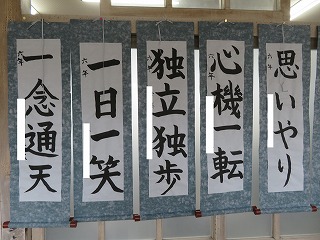 思いやり
六年
心機一転
六年
独立独歩
六年
一日一笑
六年
一念通天
六年